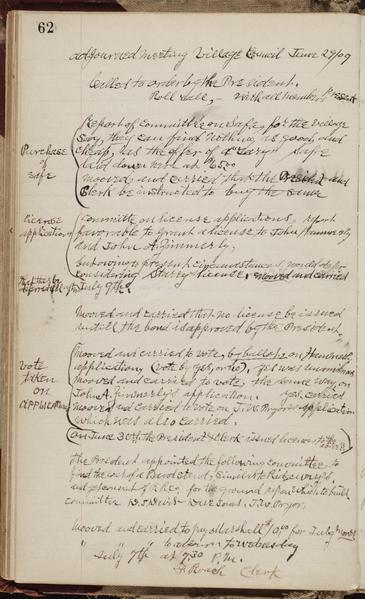 62
adjourned meeting Village Council June 29/09
Called to order by the President.
Roll Call, - with all members present
Report of committee on Safe, for the village
say, they can find nothing as good, and
cheap, has the offer of Safe
laid down here at
moved and carried that the President and
Clerk be instructed to buy the same
Purchase
of
safe
Committee on license applications, report
favorable to grant a license to John
and John A. Zimmerly,
but owing to present circumstances, would defer
considering Starry license, moved and carried
July 9th.
license
applications
Moved and carried that no license be issued
until the bond is approved by the President
Moved and carried to vote, by ballot, on
application, (vote by yes, or no), yes was unanimous
moved and carried to vote, the same way on
John A. Zimmerly's application. yes, carried
moved and carried to vote on J.W. Pryor's application
which was also carried.
vote
taken
on
application
on June 30th the President & Clerk issued license to the
The President appointed the following committee, to
find the cost of a Band stand, similar to
and for the ground upon which to build
committee J.W. Pryor.
Moved and carried to pay Marshall for July
" " to adjourn to Wednesday
July 7th at 7.30 P.M.
Clerk